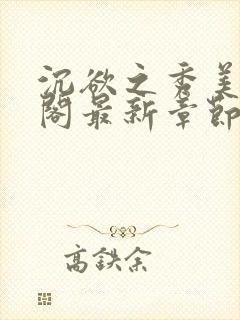 沉欲之香美
阁最新章節
高鉄余